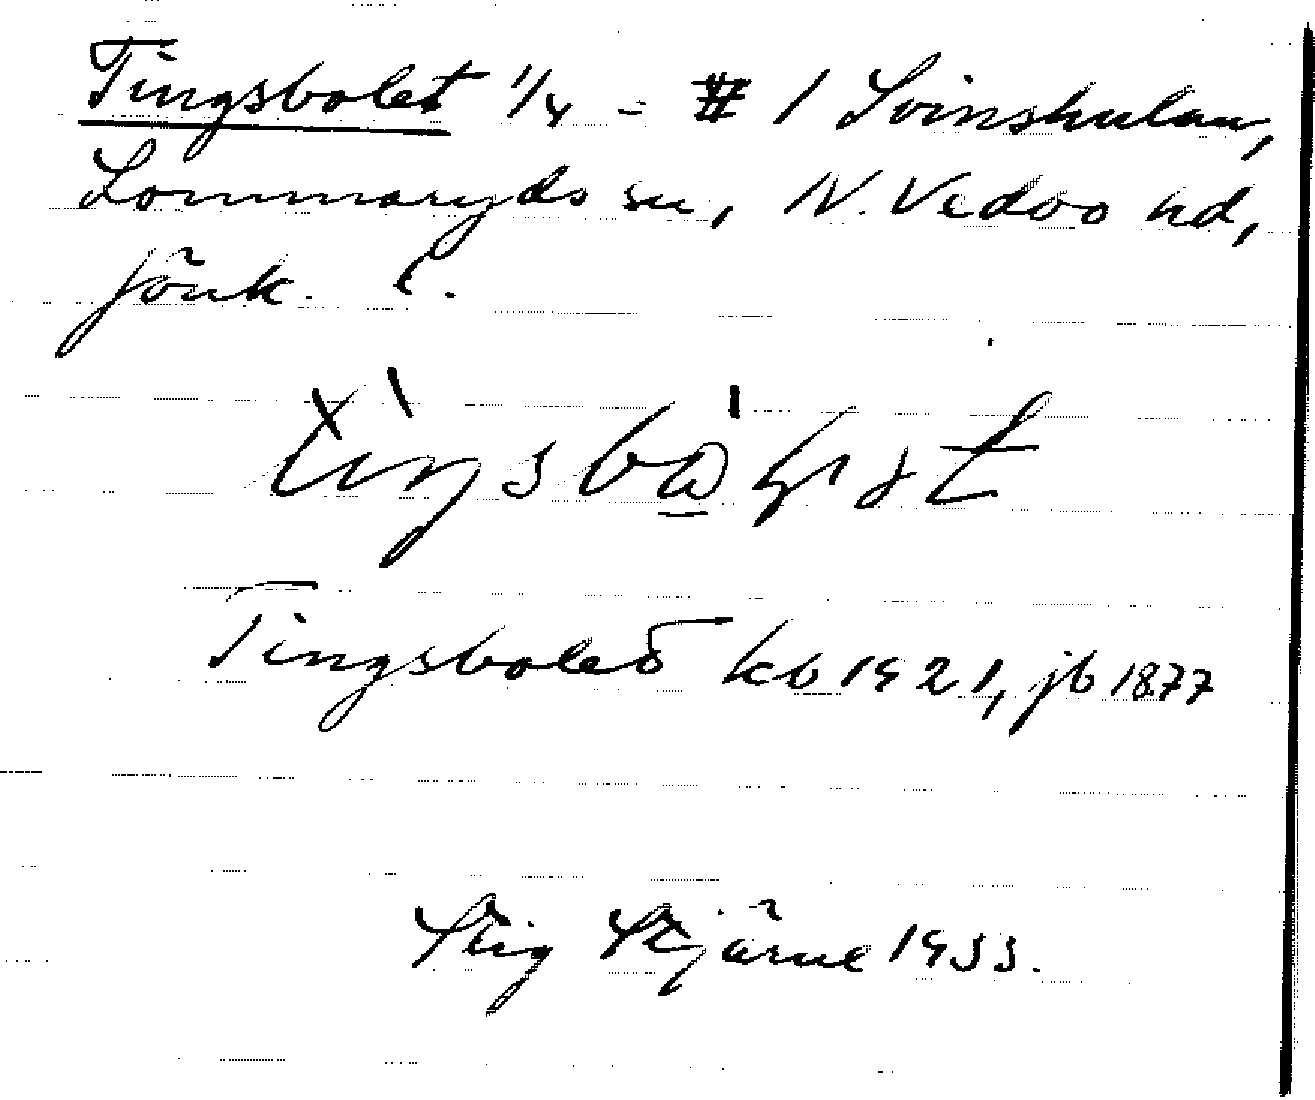 Tingsbolet 1/4 - # 1 Svinshulan,
Lommaryds sn, N. Vedbo hd,
Jönk. l.
Tingsbolet kb 1921, jb 1877
Stig Stjärne 1933.